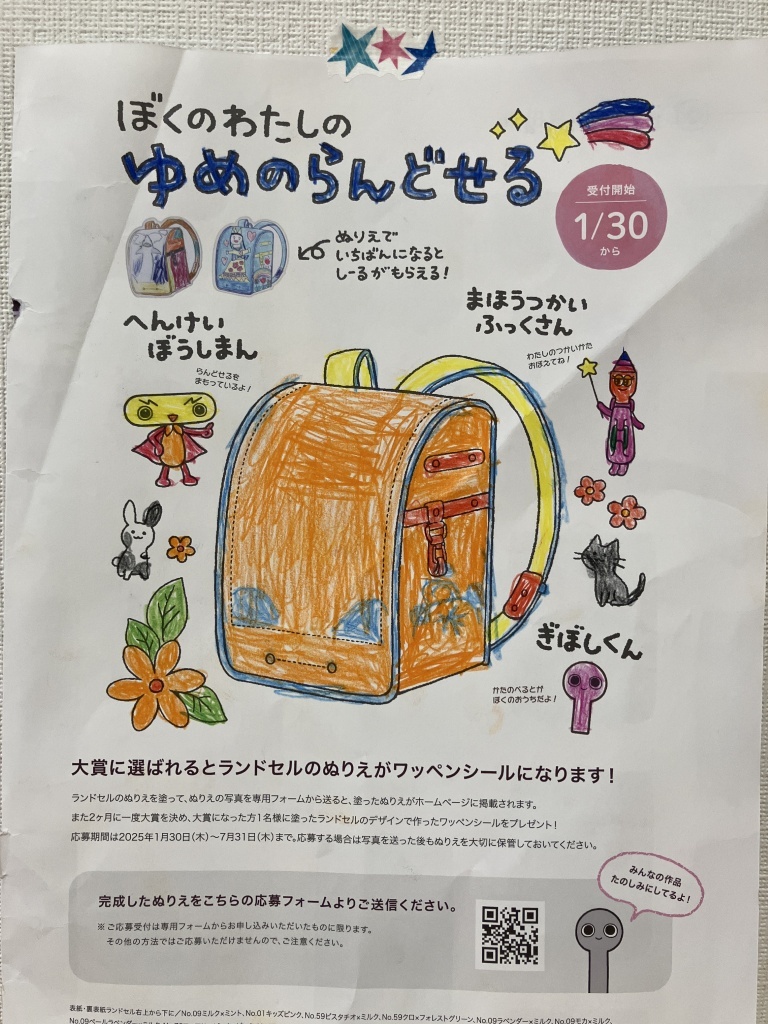 ぼくのわたしの
ゆめのらんどせる
受付開始
1/30
から
ぬりえで
いちばんになると
しーるがもらえる!
へんけい
ぼうしまん
らんどせるを
まもっているよ!
まほうつかい
ふっくさん
わたしのつかいかた
おぼえてね!
ぎぼしくん
かたのべるとが
ぼくのおうちだよ!
大賞に選ばれるとランドセルのぬりえがワッペンシールになります!
ランドセルのぬりえを塗って、ぬりえの写真を専用フォームから送ると、塗ったぬりえがホームページに掲載されます。
また2ヶ月に一度大賞を決め、大賞になった方1名様に塗ったランドセルのデザインで作ったワッペンシールをプレゼント!
応募期間は2025年1月30日(木)〜7月31日(木)まで。応募する場合は写真を送った後もぬりえを大切に保管しておいてください。
みんなの作品
たのしみにしてるよ!
完成したぬりえをこちらの応募フォームよりご送信ください。
※ご応募受付は専用フォームからお申し込みいただいたものに限ります。
その他の方法ではご応募いただけませんので、ご注意ください。
表紙・裏表紙ランドセル右上から下に/No.09ミルク×ミント、No.01キッズピンク、No.59ピスタチオ×ミルク、No.59クロ×フォレストグリーン、No.09ラベンダー×ミルク、No.09モカ×ミルク、